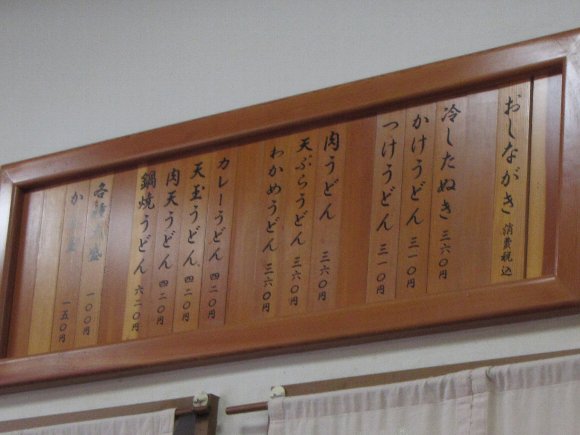 おしながき 消費税込
冷したぬき 三六〇円
かけうどん 三一〇円
つけうどん 三一〇円
肉うどん 三六〇円
天ぷらうどん 三一〇円
わかめうどん 三六〇円
カレーうどん 四二〇円
天玉うどん 四二〇円
肉天うどん 四二〇円
鍋焼うどん 六二〇円
各 盛 一〇〇円
か 一五〇円